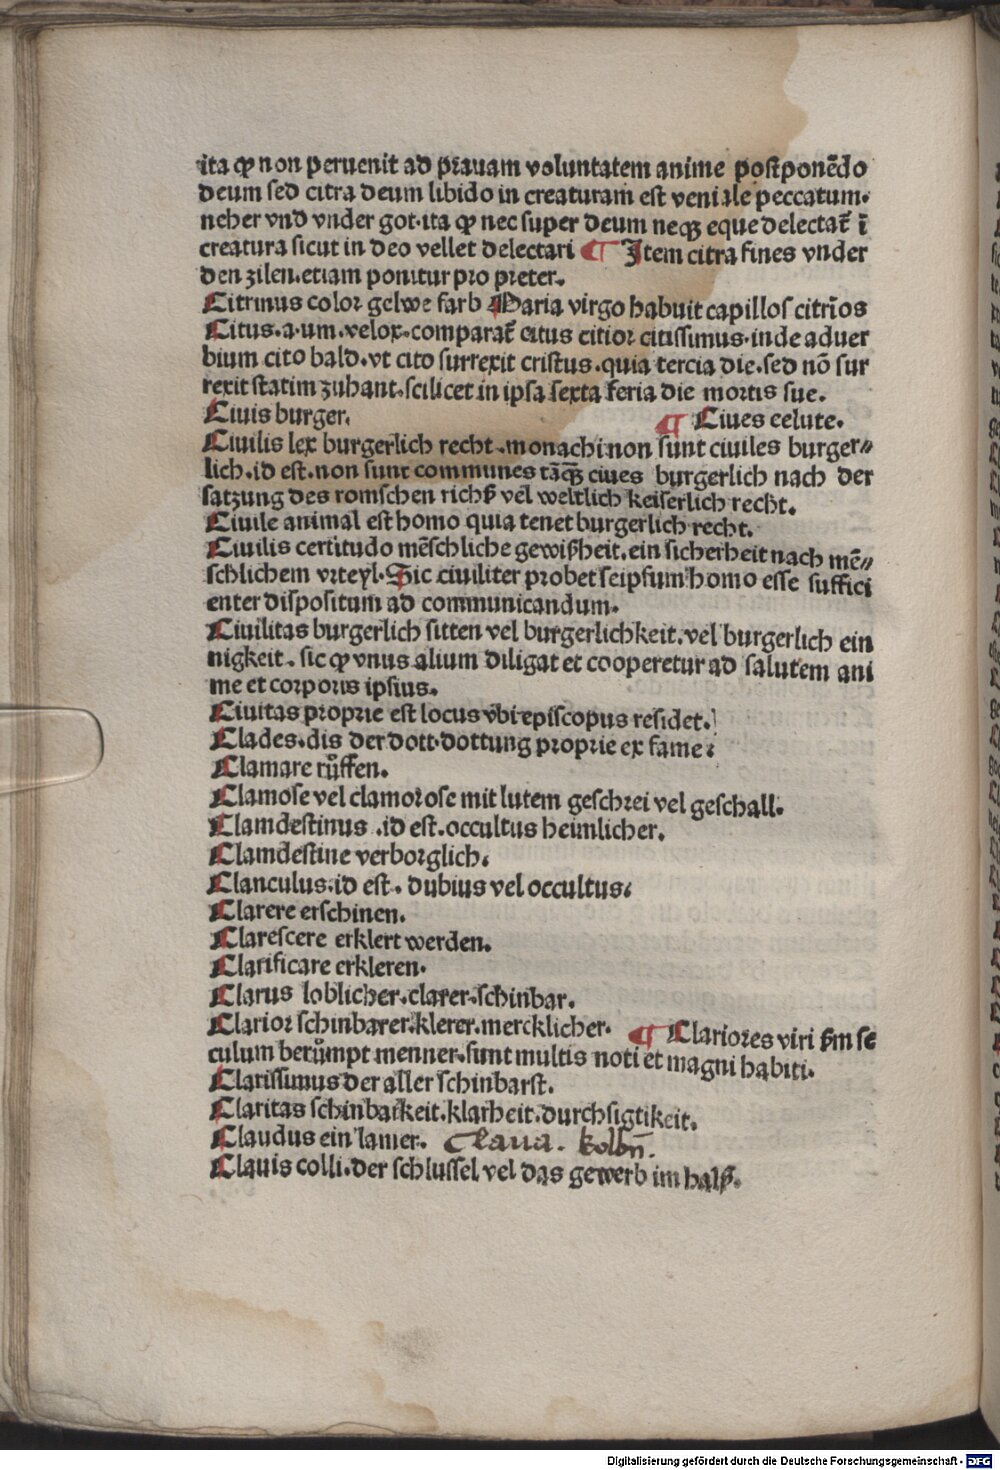 ita ꝙ non peruenit ad prauam voluntatem anime postponẽdo
deum sed citra deum libido in creaturam est veniale peccatum.
neher vnd vnder got. ita ꝙ nec super deum neqꝫ eque delectat̃ ĩ
creatura sicut in deo vellet delectari ¶ Item citra fines vnder
den zilen. etiam ponitur pro preter.
Citrinus color gelwe farb Maria virgo habuit capillos citrĩos
Citus. a. um. velox. comparat̃ citus citior citissimus. inde aduer
bium cito bald. vt cito surrexit cristus. quia tercia die. sed nõ sur
rexit statim zuhant. scilicet in ipsa sexta feria die mortis sue.
Ciuis burger. ¶ Ciues celute.
Ciuilis lex burgerlich recht. monachi non sunt ciuiles burger⸗
lich. id est. non sunt communes tãqꝫ ciues burgerlich nach der
satzung des romschen richß vel weltlich keiserlich recht.
Ciuile animal est homo quia tenet burgerlich recht.
Ciuilis certitudo mẽschliche gewißheit. ein sicherheit nach mẽ⸗
schlichem vrteyl. Sic ciuiliter probet seipsum homo esse suffici
enter dispositum ad communicandum.
Ciuilitas burgerlich sitten vel burgerlichkeit. vel burgerlich ein
nigkeit. sic ꝙ vnus alium diligat et cooperetur ad salutem ani
me et corporis ipsius.
Ciuitas proprie est locus vbi episcopus residet.
Clades. dis der dott. dottung proprie ex fame.
Clamare růffen.
Clamose vel clamorose mit lutem geschrei vel geschall.
Clamdestinus .id est. occultus heimlicher.
Clamdestine verborglich.
Clanculus. id est. dubius vel occultus.
Clarere erschinen.
Clarescere erklert werden.
Clarificare erkleren.
Clarus loblicher. clarer. schinbar.
Clarior schinbarer. klerer. mercklicher. ¶ Clariores viri ẜm se
culum berůmpt menner. sunt multis noti et magni habiti.
Clarissimus der aller schinbarst.
Claritas schinbarkeit. klarheit. durchsigtikeit.
Claudus ein lamer. Claua. kolbñ.
Clauis colli. der schlussel vel das gewerb im halß.
Digitalisierung gefördert durch die Deutsche Forschungsgemeinschaft - DFG